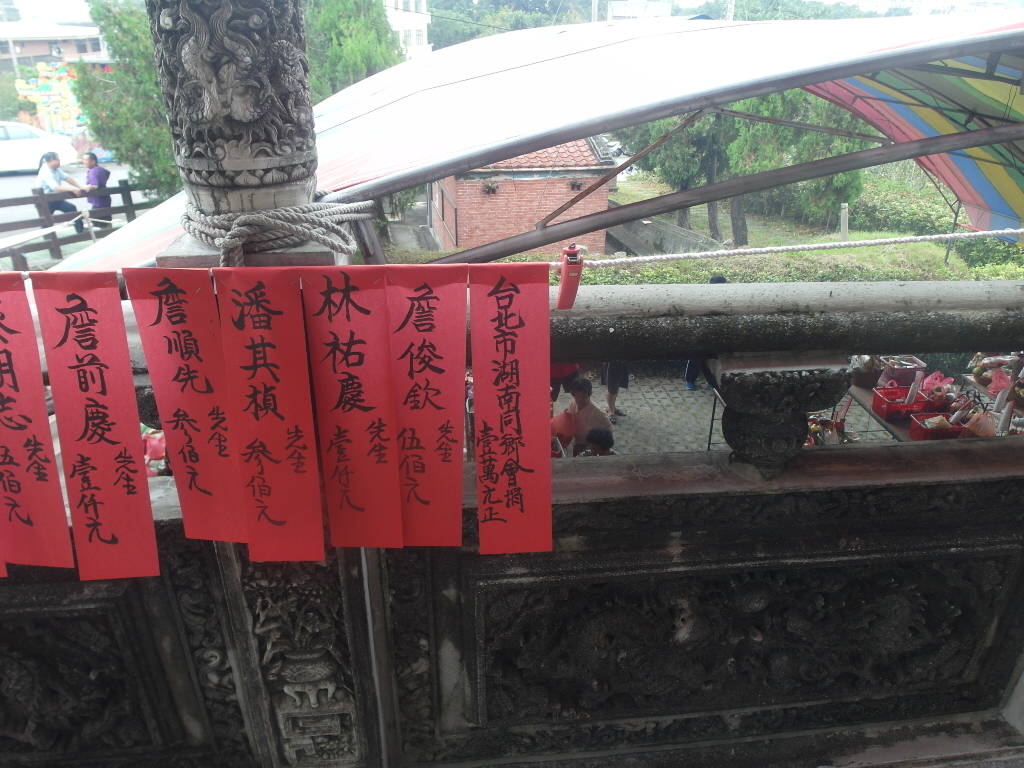 台北市湖南同鄉會捐
壹萬元正
詹俊欽
先生
伍佰元
林祐慶
先生
壹仟元
潘其楨
先生
參佰元
詹順先
先生
參佰元
詹前慶
先生
壹仟元
明志
先生
伍佰元